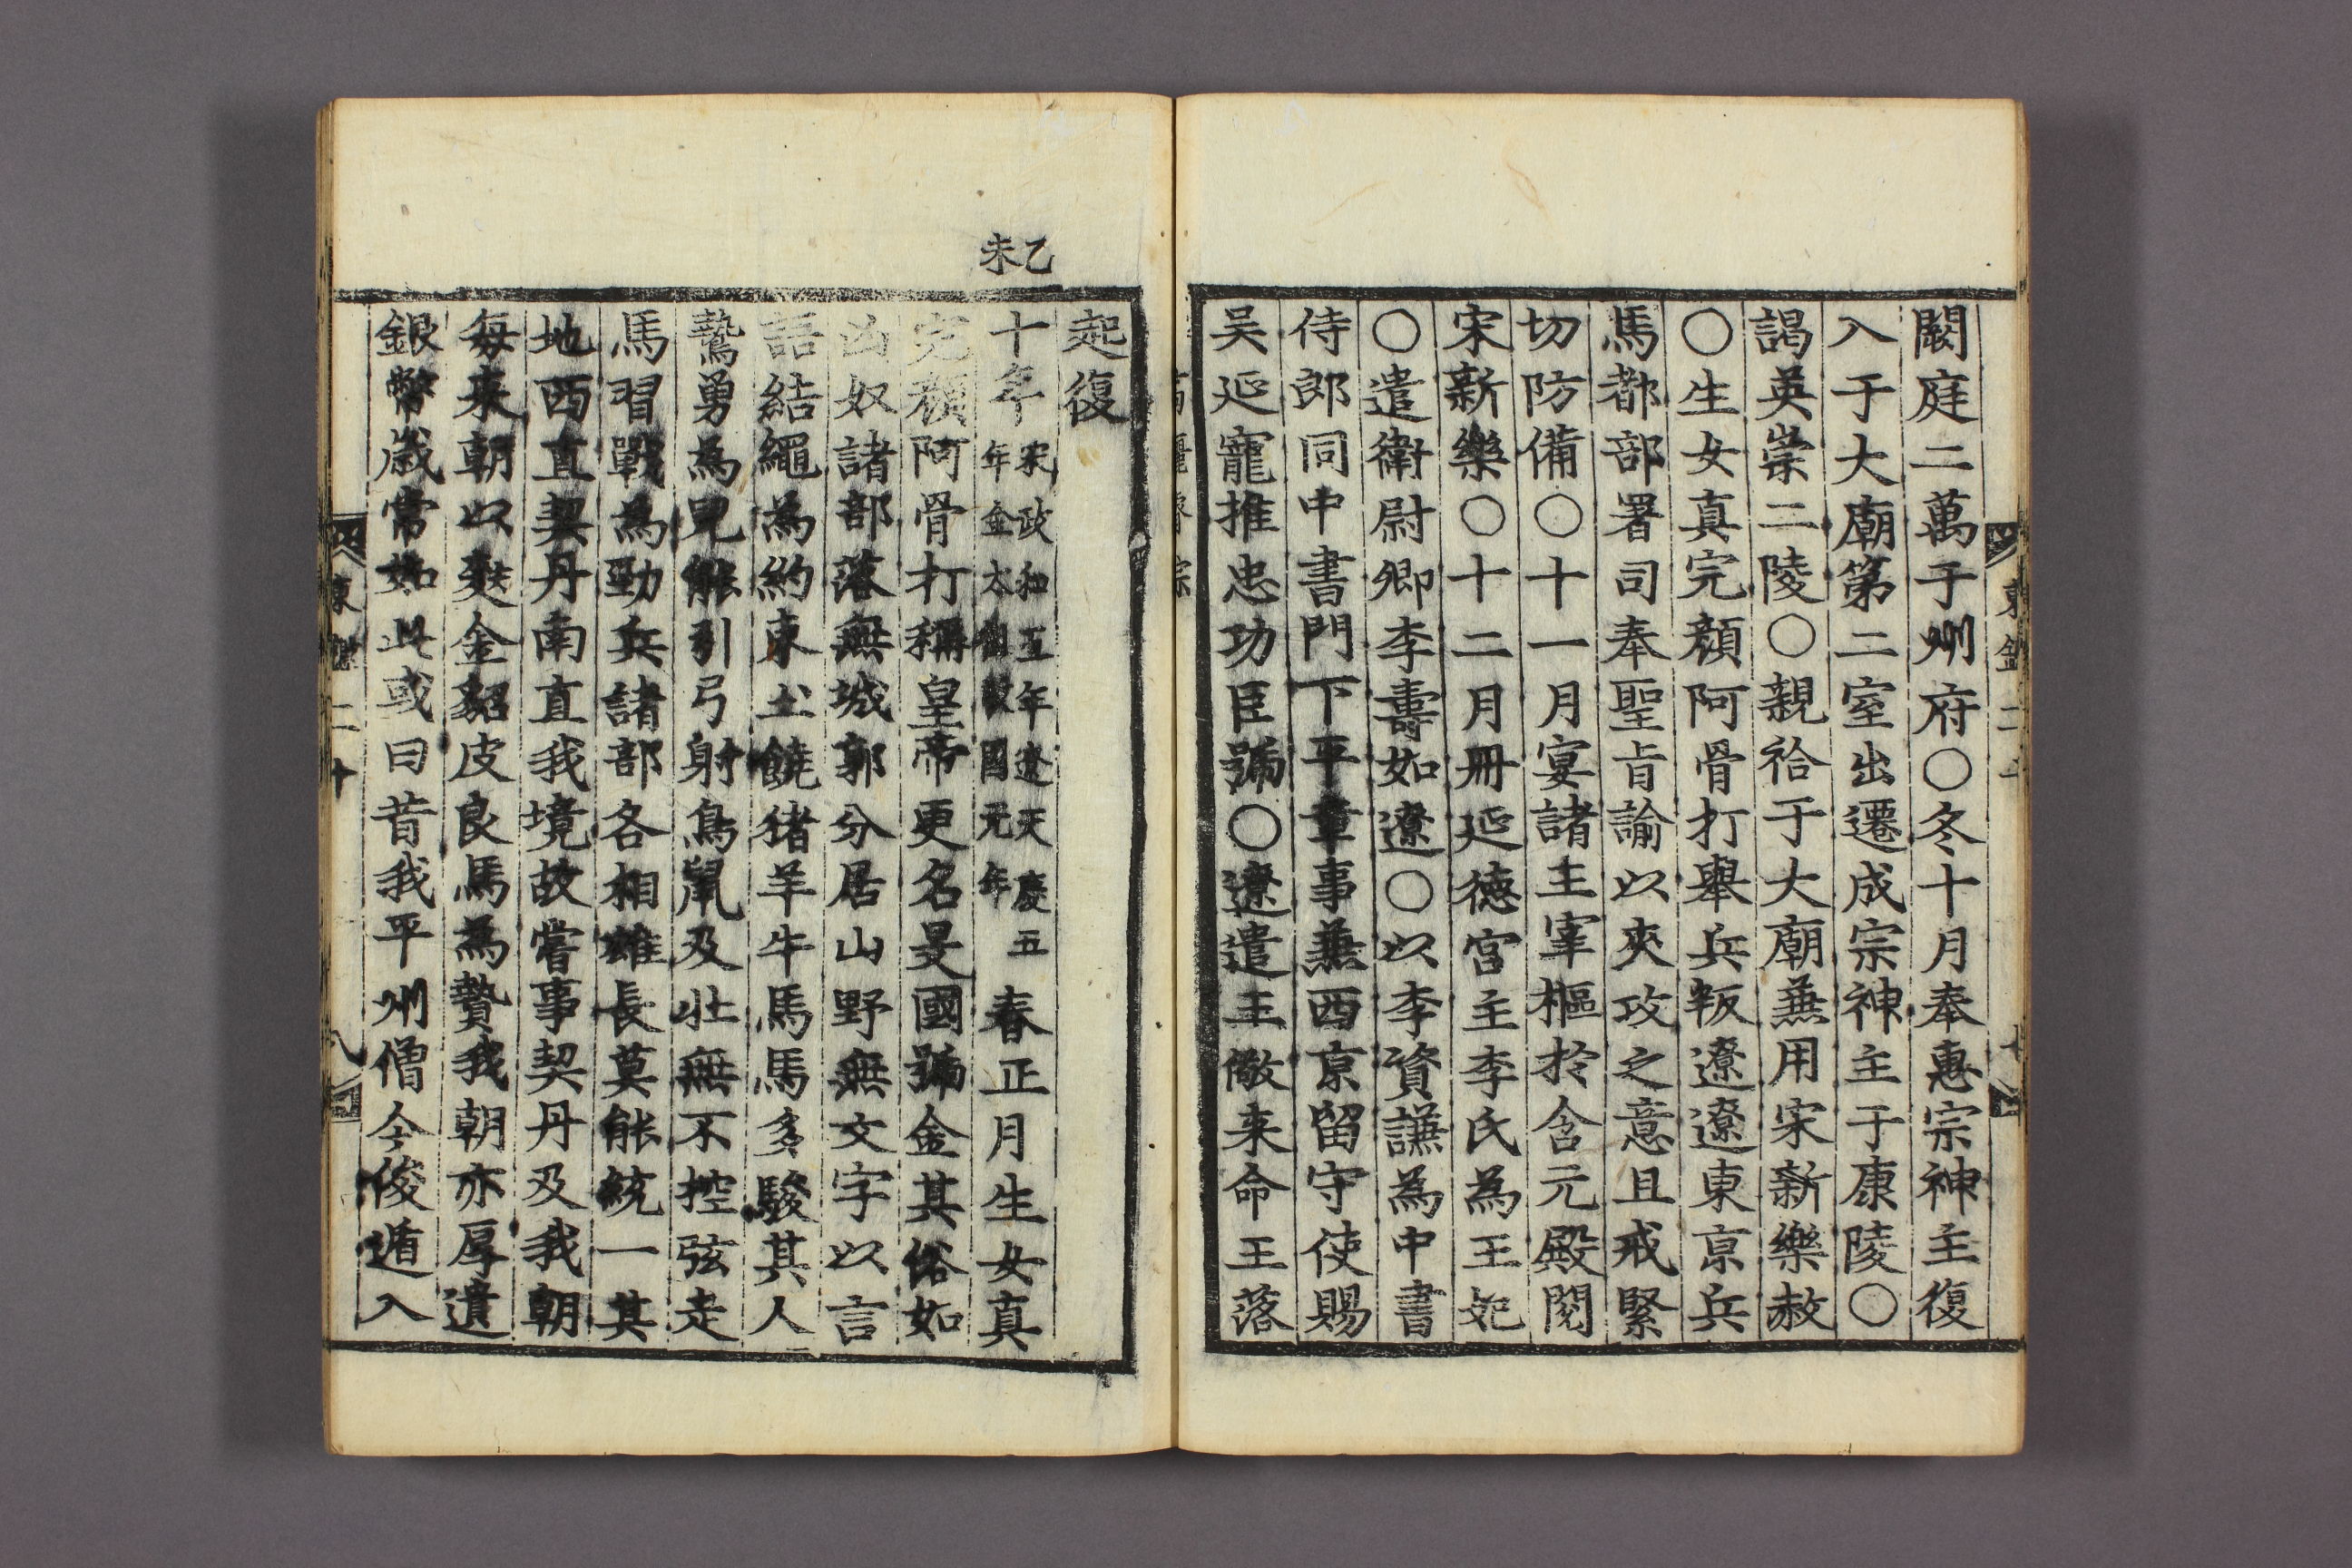 闕庭二萬于州府〇冬十月奉惠宗神主復
入于大廟第二室出遷成宗神主于康陵〇
謁英崇二陵〇親祫于大廟兼用宋新樂赦
〇生女真完顔阿骨打舉兵叛遼遼東京兵
馬都部署司奉聖旨諭以夾攻之意且戒緊
切防備〇十一月宴諸王宰樞於含元殿閱
宋新樂〇十二月冊延德宮主李氏為王妃
〇遣衛尉卿李壽如遼〇以李資謙為中書
侍郎同中書門下平章事兼西京留守使賜
吴延寵推忠功臣號〇遼遣王儆来命王落
起復
乙未
十年宋政和五年遼天慶五年金太祖收國元年春正月生女真
完顔阿骨打稱皇帝更名旻國號金其俗如
匈奴諸部落無城郭分居山野無文字以言
語結繩為約束土饒猪羊牛馬馬多駿其人
鷙勇為兒能引弓射鳥鼠及壯無不控弦走
馬習戰為勁兵諸部各相雄長莫能統一其
地西直契丹南直我境故嘗事契丹及我朝
每来朝以麩金貂皮良馬為贄我朝亦厚遺
銀幣歲常如此或曰昔我平州僧今俊遁入
東 二十 八